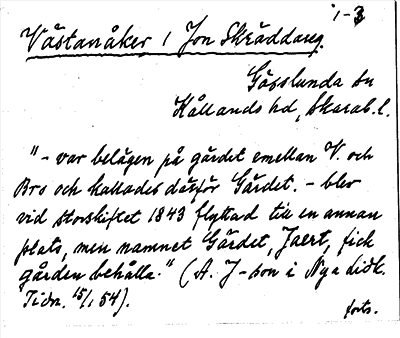 1-3
Västanåker 1 Jon Skräddareg.
Gösslunda sn
Kållands hd, Skarab. l.
"- var belägen på gärdet emellan V. och
Bro och kallades därför Gärdet. - blev
vid storskiftet 1843 flyttad till en annan
plats, men namnet Gärdet, Jaert, fick
gården behålla." (A. J-son i Nya Lidk.
Tidn. 15/1 54).
forts.